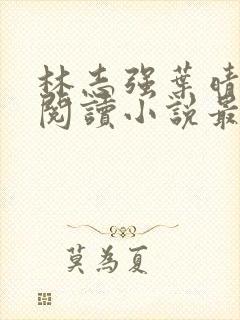 林志强葉晴
閱讀小說最
莫為夏